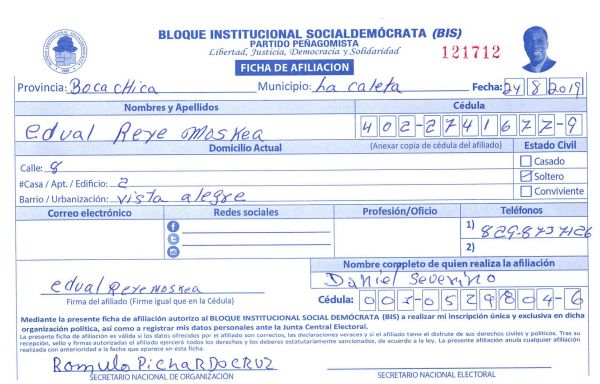 BLOQUE INSTITUCIONAL SOCIALDEMÓCRATA (BIS)
PARTIDO PEÑAGOMISTA
Libertad, Justicia, Democracia y Solidaridad
121712
FICHA DE AFILIACION
Provincia: Boca chica Municipio: La caleta Fecha: 24/8/2019
Nombres y Apellidos Cédula
edual Reye moskea 402-2741677-9
Domicilio Actual (Anexar copia de cédula del afiliado) Estado Civil
Calle: 8 Casado
#Casa / Apt. / Edificio: 2 Soltero
Barrio / Urbanización: vista alegre Conviviente
Correo electrónico Redes sociales Profesión/Oficio Teléfonos
1) 829-8737126
2)
Nombre completo de quien realiza la afiliación
edual Reye moskea Daniel Severino
Firma del afiliado (Firme igual que en la Cédula) Cédula: 001-0529804-6
Mediante la presente ficha de afiliación autorizo al BLOQUE INSTITUCIONAL SOCIAL DEMÓCRATA (BIS) a realizar mi inscripción única y exclusiva en dicha
organización política, así como a registrar mis datos personales ante la Junta Central Electoral.
La presente ficha de afiliación es válida si los datos ofrecidos por el afiliado son correctos, las declaraciones veraces y si el afiliado tiene el disfrute de sus derechos civiles y políticos. Tras su
recepción, sello y firmas autorizadas el afiliado ejercerá todos los derechos y los deberes estatutariamente sancionados, de acuerdo a la ley. La presente afiliación anula cualquier afiliación
realizada con anterioridad a la fecha que aparece en esta ficha.
Romulo Pichardo Cruz
SECRETARIO NACIONAL DE ORGANIZACIÓN SECRETARIO NACIONAL ELECTORAL